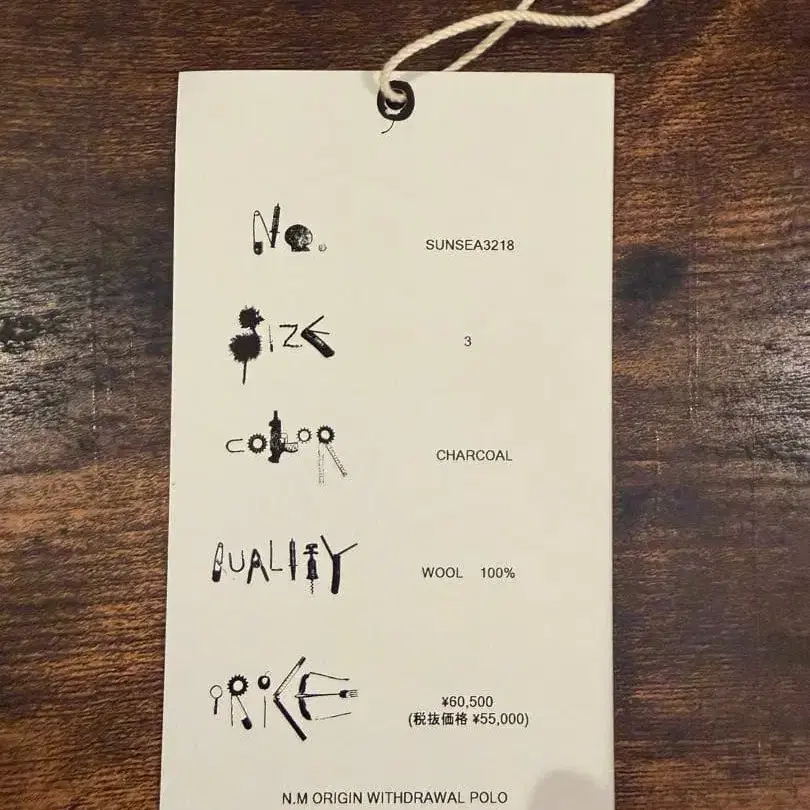 No. SUNSEA3218
SIZE 3
COLOR CHARCOAL
QUALITY WOOL 100%
PRICE ¥60,500
(税抜価格 ¥55,000)
N.M ORIGIN WITHDRAWAL POLO